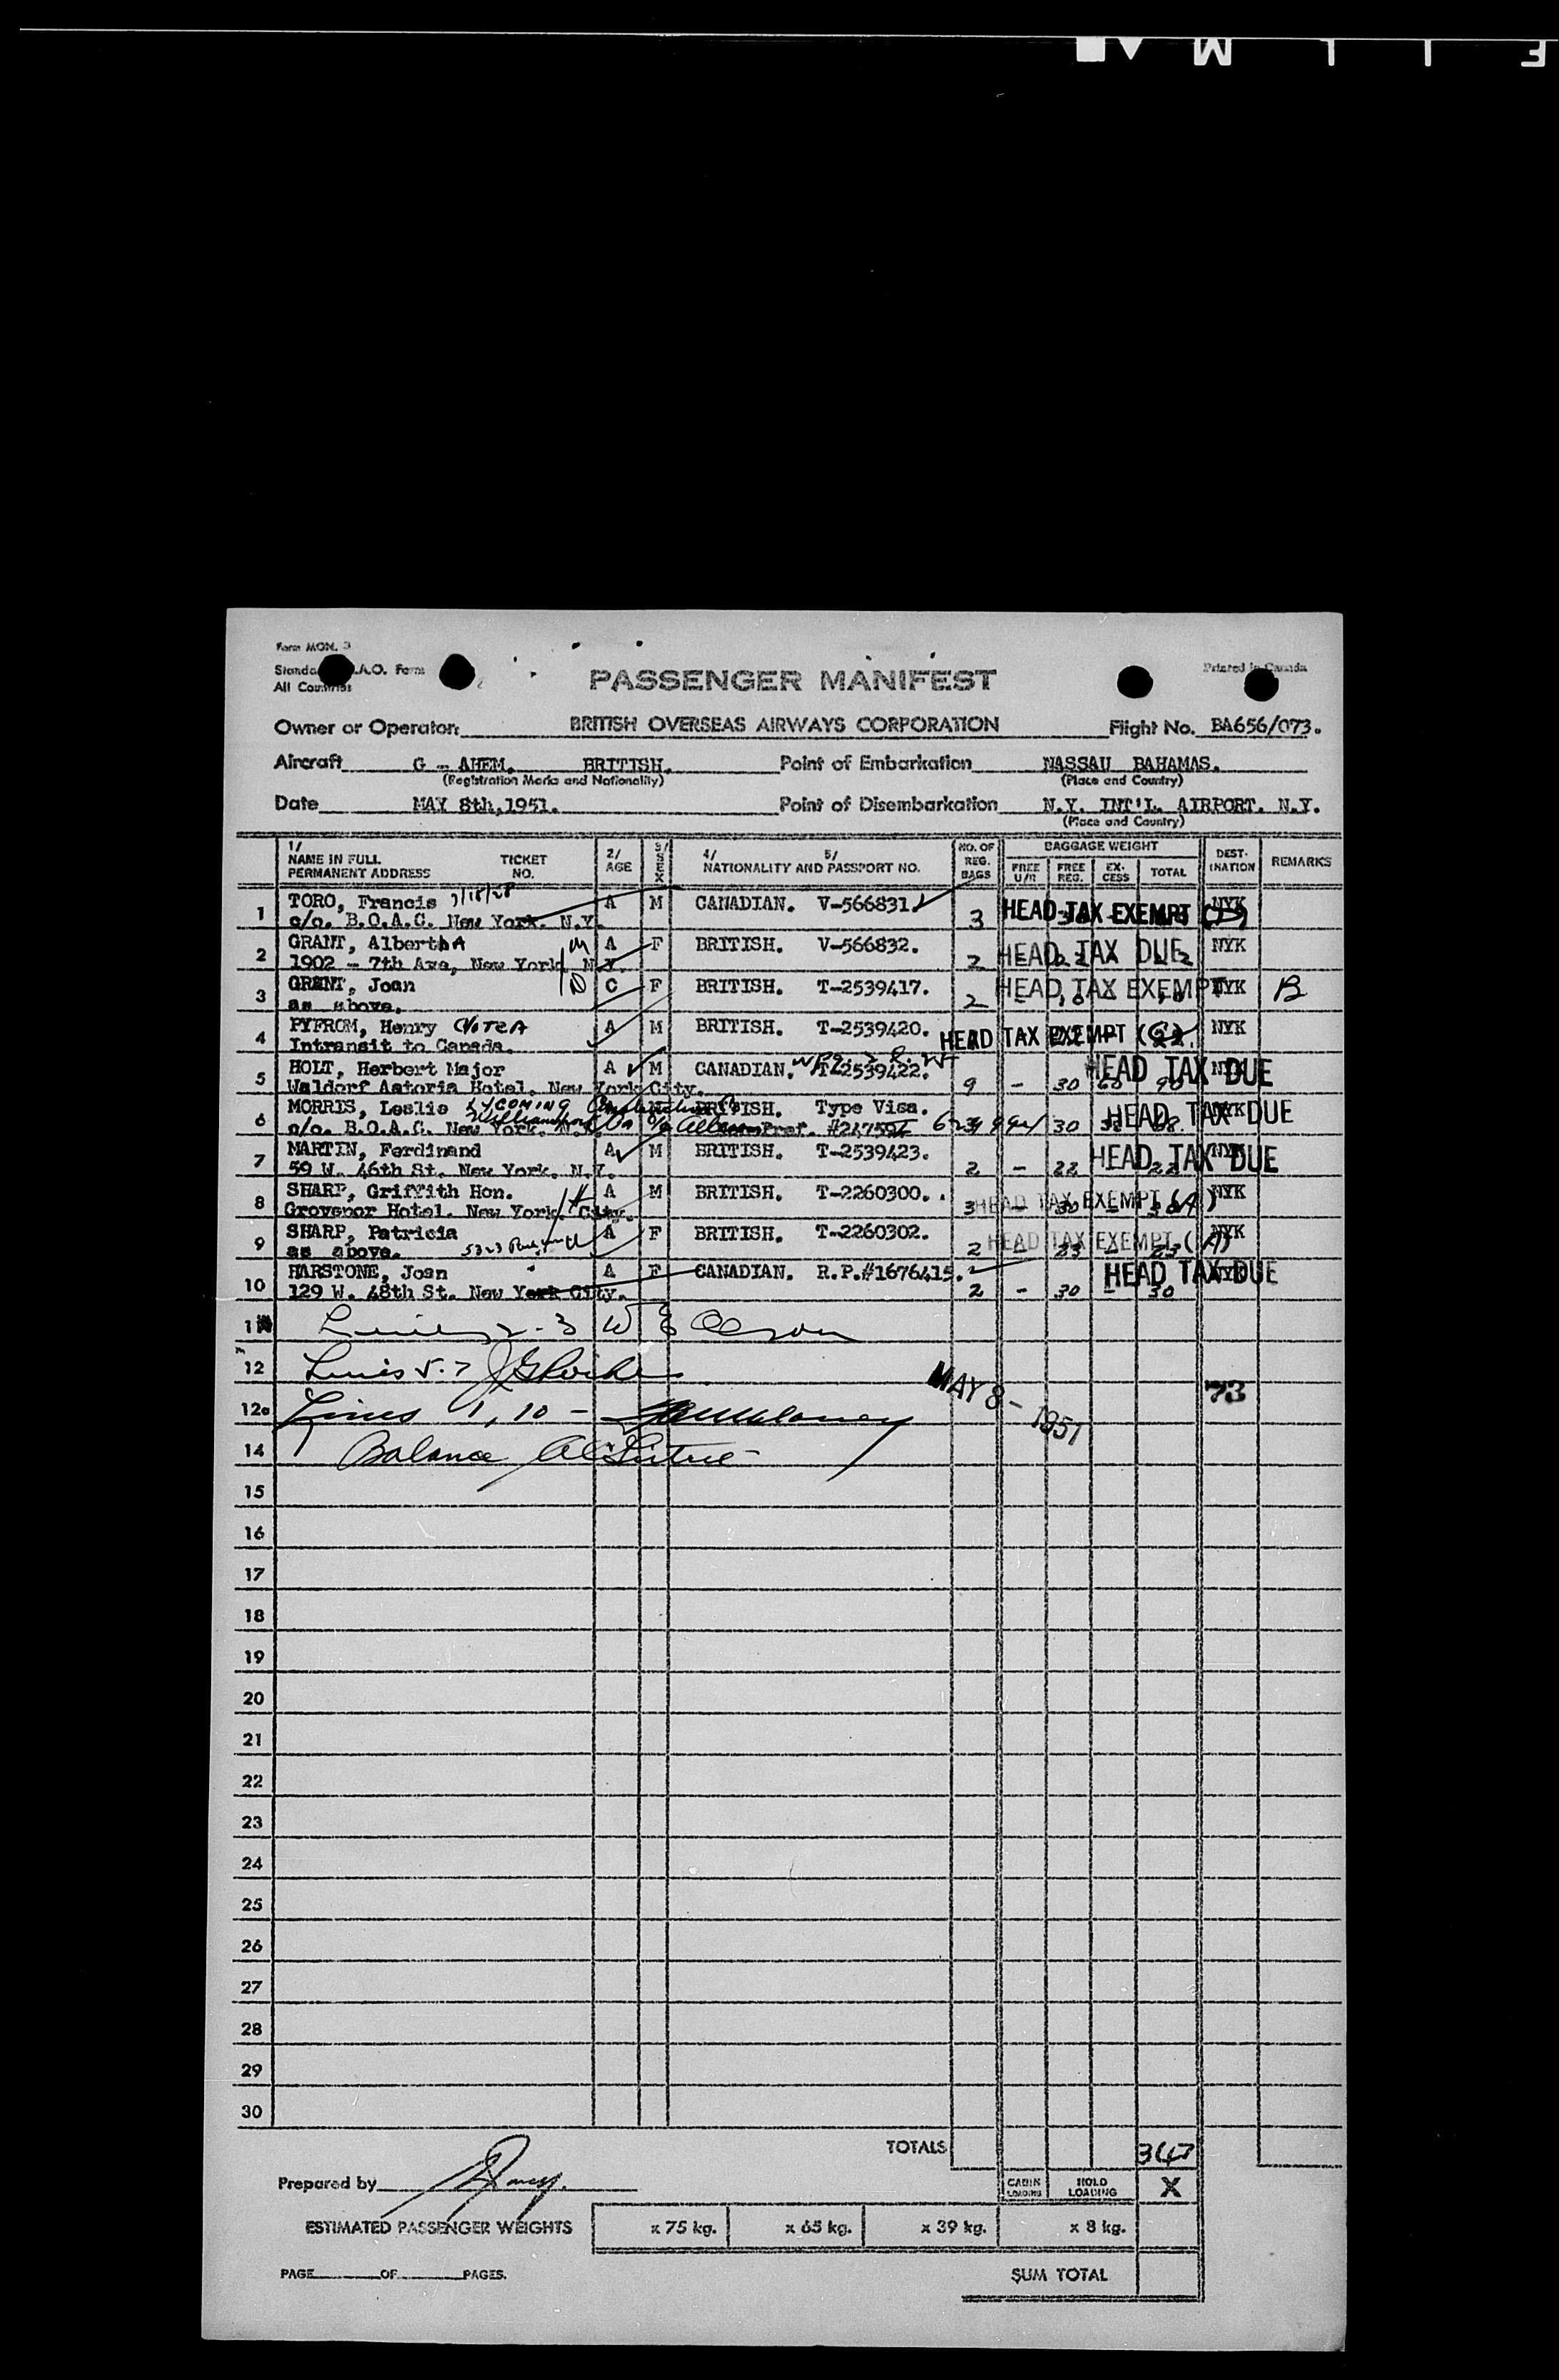 Form MON. 3
All Countries
Printed in Canada
PASSENGER MANIFEST
Owner or Operator: BRITISH OVERSEAS AIRWAYS CORPORATION Flight No. BA656/073.
Aircraft G - AHEM. BRITISH. Point of Embarkation NASSAU BAHAMAS.
(Registration Marks and Nationality) (Place and Country)
Date MAY 8th, 1951. Point of Disembarkation N.Y. INT'L. AIRPORT. N.Y.
(Place and Country)
1/ NAME IN FULL PERMANENT ADDRESS TICKET NO. 2/ AGE 3/ SEX 4/ 5/ NATIONALITY AND PASSPORT NO. NO. OF REG. BAGS BAGGAGE WEIGHT FREE U/R FREE REG. EX-CESS TOTAL DEST-INATION REMARKS
1 TORO, Francis A M CANADIAN. V-566831. 3 HEAD TAX EXEMPT NYK
c/o. B.O.A.C. New York. N.Y.
2 GRANT, Alberta A F BRITISH. V-566832. 2 HEAD TAX DUE NYK
1902 - 7th Ave, New York, N.Y.
3 GRANT, Joan C F BRITISH. T-2539417. 2 HEAD TAX EXEMPT NYK B
as above.
4 PYFROM, Henry A M BRITISH. T-2539420. HEAD TAX EXEMPT NYK
Intransit to Canada.
5 HOLT, Herbert Major A M CANADIAN. T-2539422. 9 - 30 60 90 HEAD TAX DUE NYK
Waldorf Astoria Hotel. New York City.
6 MORRIS, Leslie LYCOMING BRITISH. Type Visa. 30 HEAD TAX DUE NYK
c/o. B.O.A.C. New York. N.Y.
7 MARTIN, Ferdinand A M BRITISH. T-2539423. 2 - 22 22 HEAD TAX DUE NYK
59 W. 46th St. New York. N.Y.
8 SHARP, Griffith Hon. A M BRITISH. T-2260300. 3 HEAD TAX EXEMPT (A) NYK
Grovenor Hotel. New York. City.
9 SHARP, Patricia A F BRITISH. T-2260302. 2 23 - 23 HEAD TAX EXEMPT (A) NYK
as above.
10 HARSTONE, Joan A F CANADIAN. R.P.#1676415. 2 - 30 - 30 HEAD TAX DUE NYK
129 W. 48th St. New York City.
11 Lines 2-3
12 Lines 5-7
MAY 8 - 1951 73
12a Lines 1, 10 -
14 Balance
15
16
17
18
19
20
21
22
23
24
25
26
27
28
29
30
TOTALS 347
Prepared by
CABIN LOADING HOLD LOADING X
ESTIMATED PASSENGER WEIGHTS x 75 kg. x 65 kg. x 39 kg. x 8 kg.
PAGE OF PAGES. SUM TOTAL